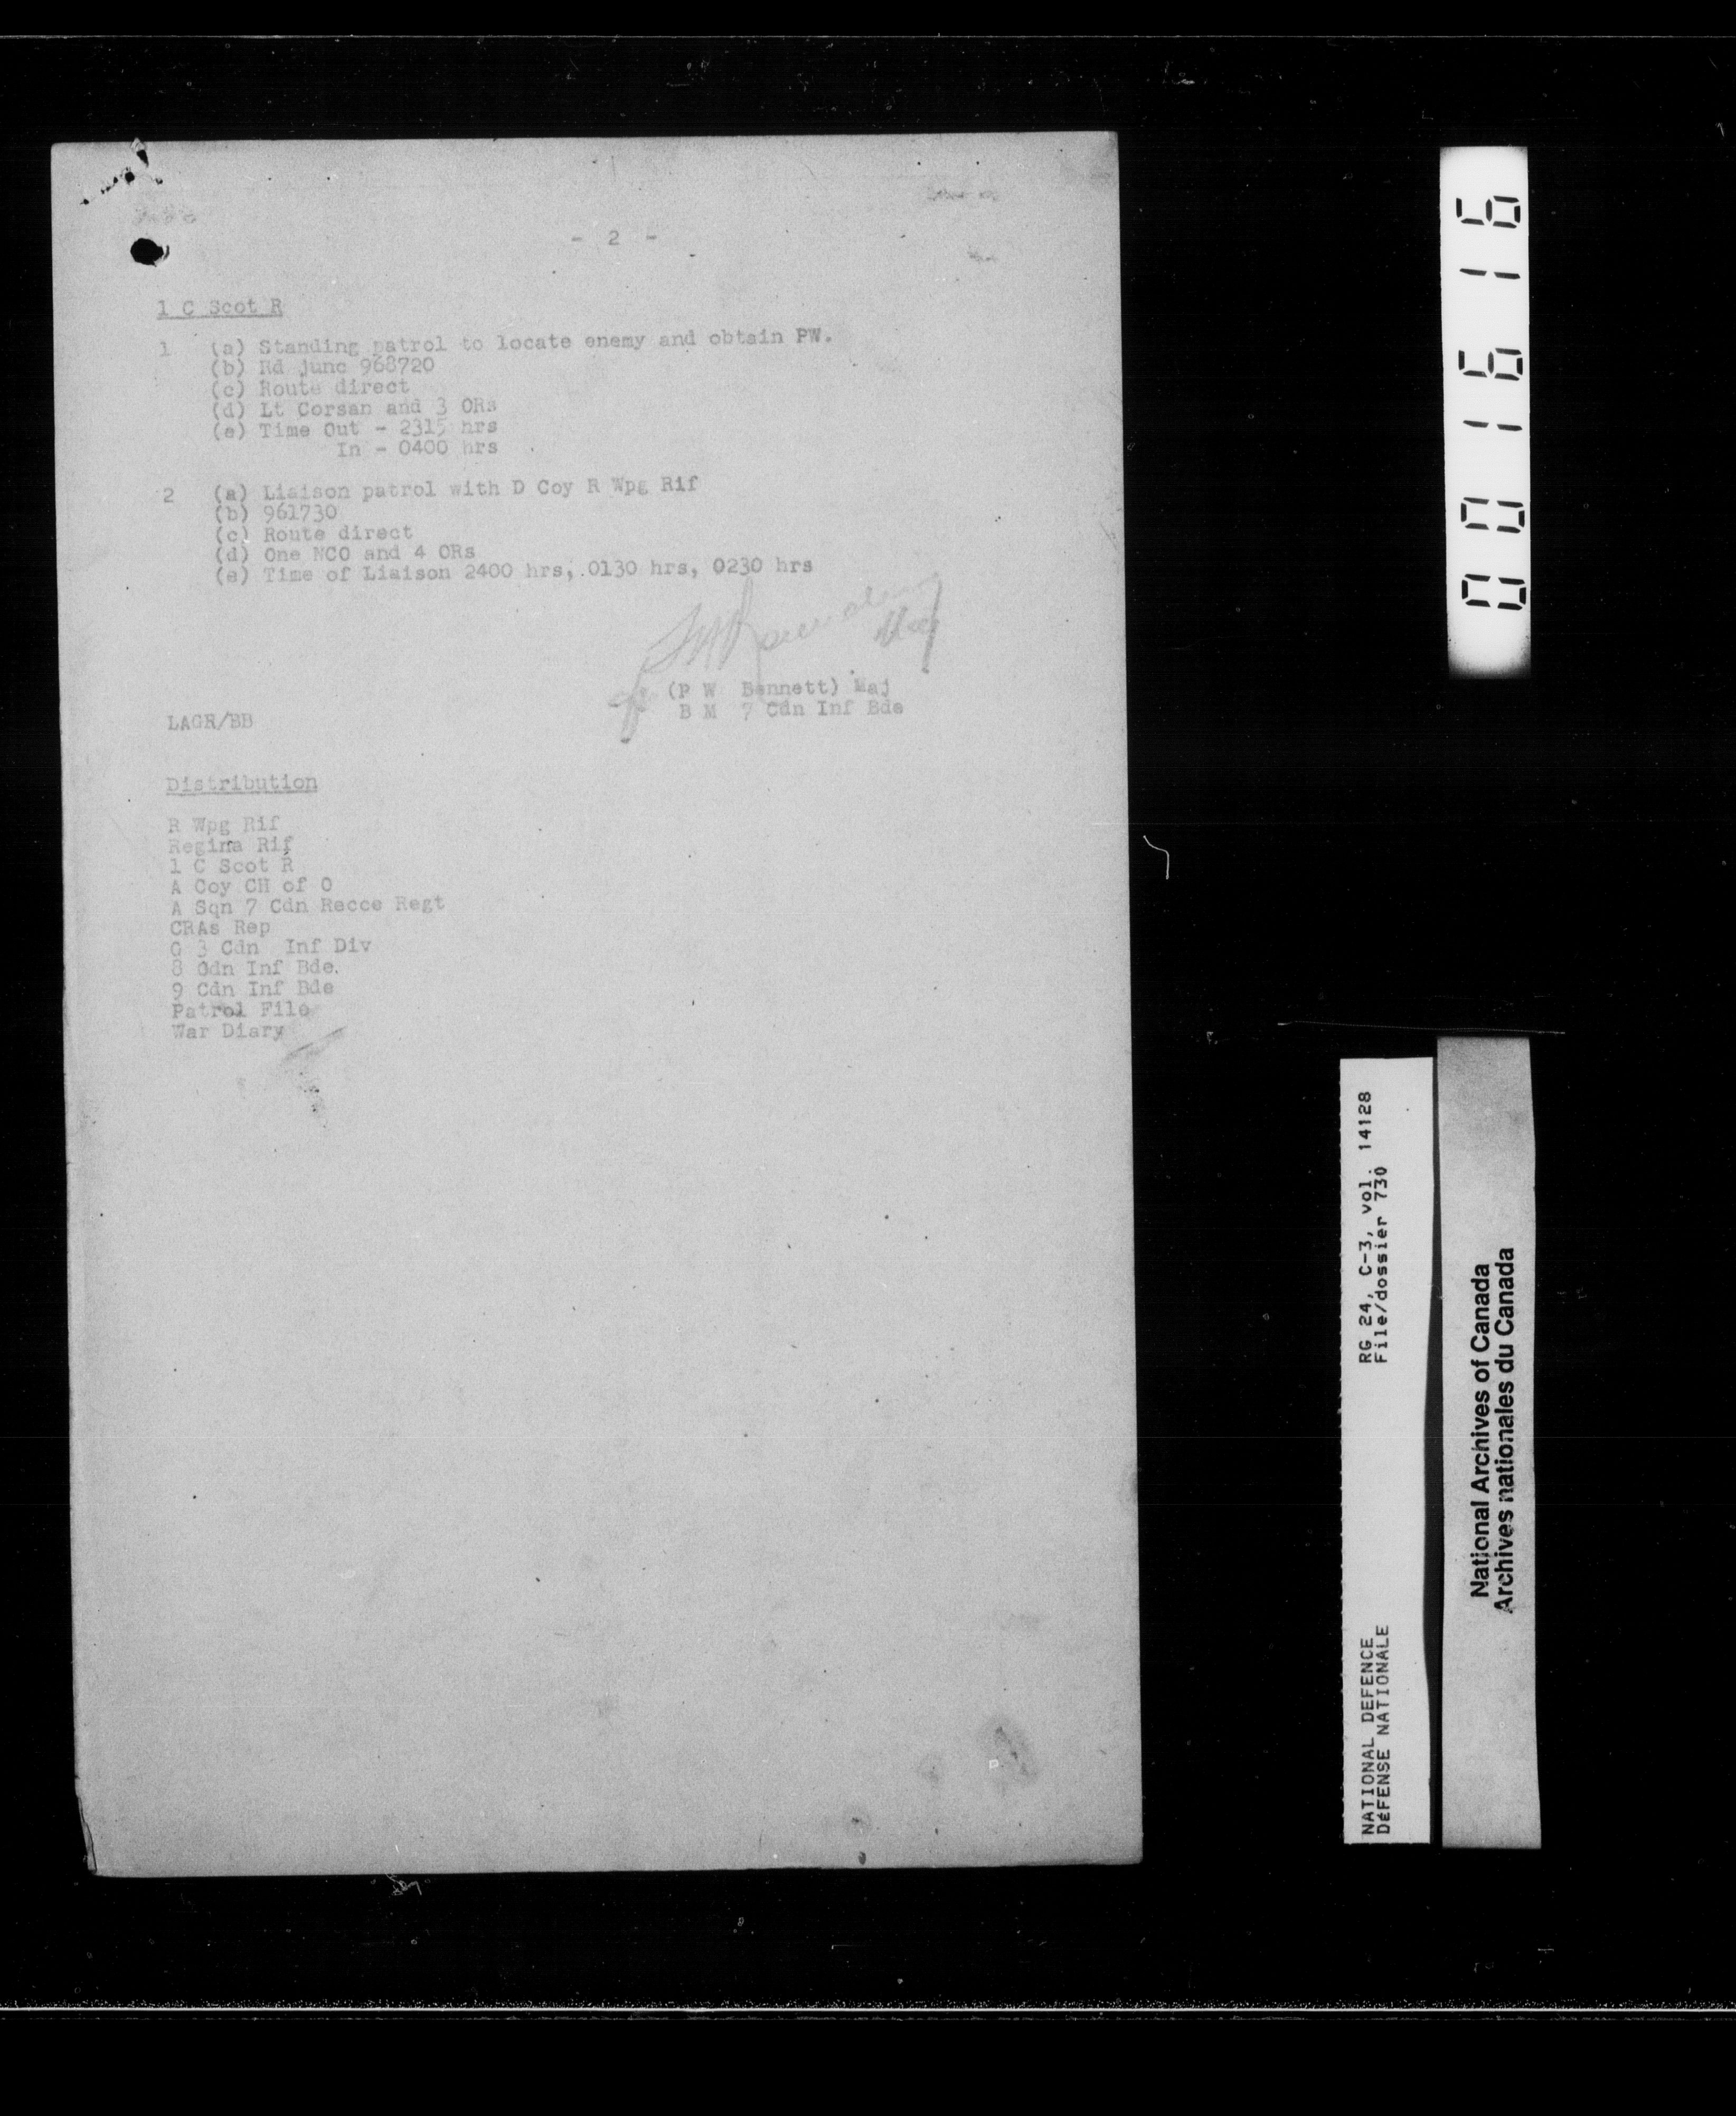 - 2 -
1 C Scot R
1 (a) Standing patrol to locate enemy and obtain PW.
(b) Rd junc 968720
(c) Route direct
(d) Lt Corsan and 3 ORs
(e) Time Out - 2315 hrs
In - 0400 hrs
2 (a) Liaison patrol with D Coy R Wpg Rif
(b) 961730
(c) Route direct
(d) One NCO and 4 ORs
(e) Time of Liaison 2400 hrs, 0130 hrs, 0230 hrs
(P W Bennett) Maj
B M 7 Cdn Inf Bde
LAGR/BB
Distribution
R Wpg Rif
Regina Rif
1 C Scot R
A Coy CH of O
A Sqn 7 Cdn Recce Regt
CRAs Rep
G 3 Cdn Inf Div
8 Cdn Inf Bde.
9 Cdn Inf Bde
Patrol File
War Diary
001616
NATIONAL DEFENCE RG 24, C-3, vol. 14128
DÉFENSE NATIONALE File/dossier 730
National Archives of Canada
Archives nationales du Canada